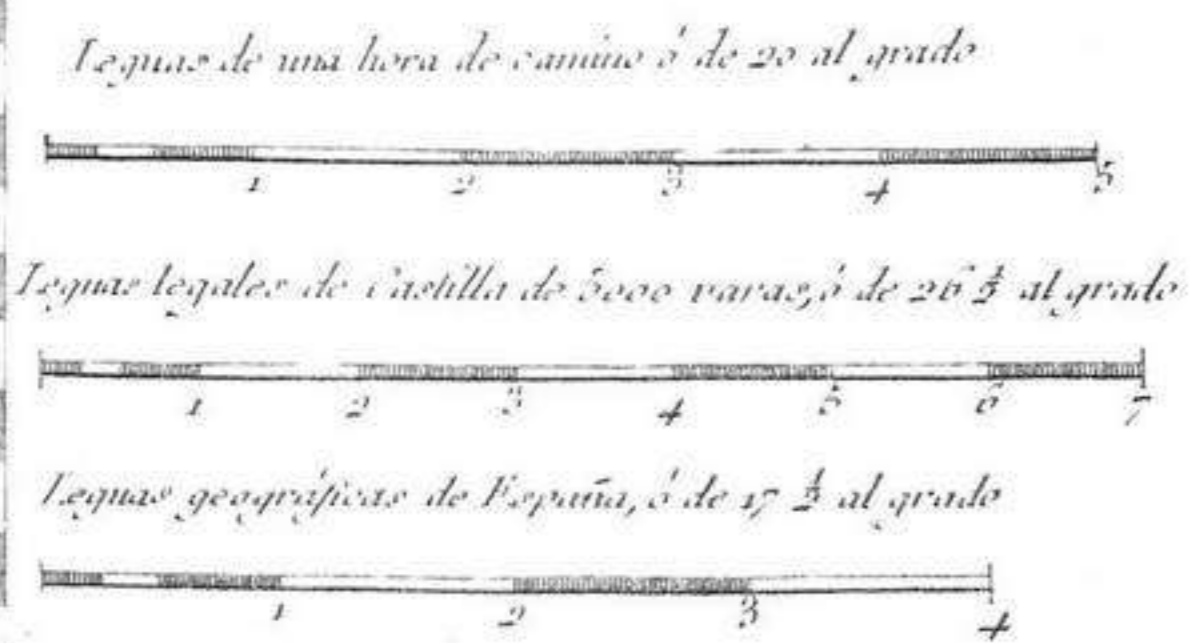 Leguas de una hora de camino ó de 20 al grado
1 2 3 4 5
Leguas legales de Castilla de 5000 varas, ó de 26 ½ al grado
1 2 3 4 5 6 7
Leguas geográficas de España, ó de 17 ½ al grado
1 2 3 4